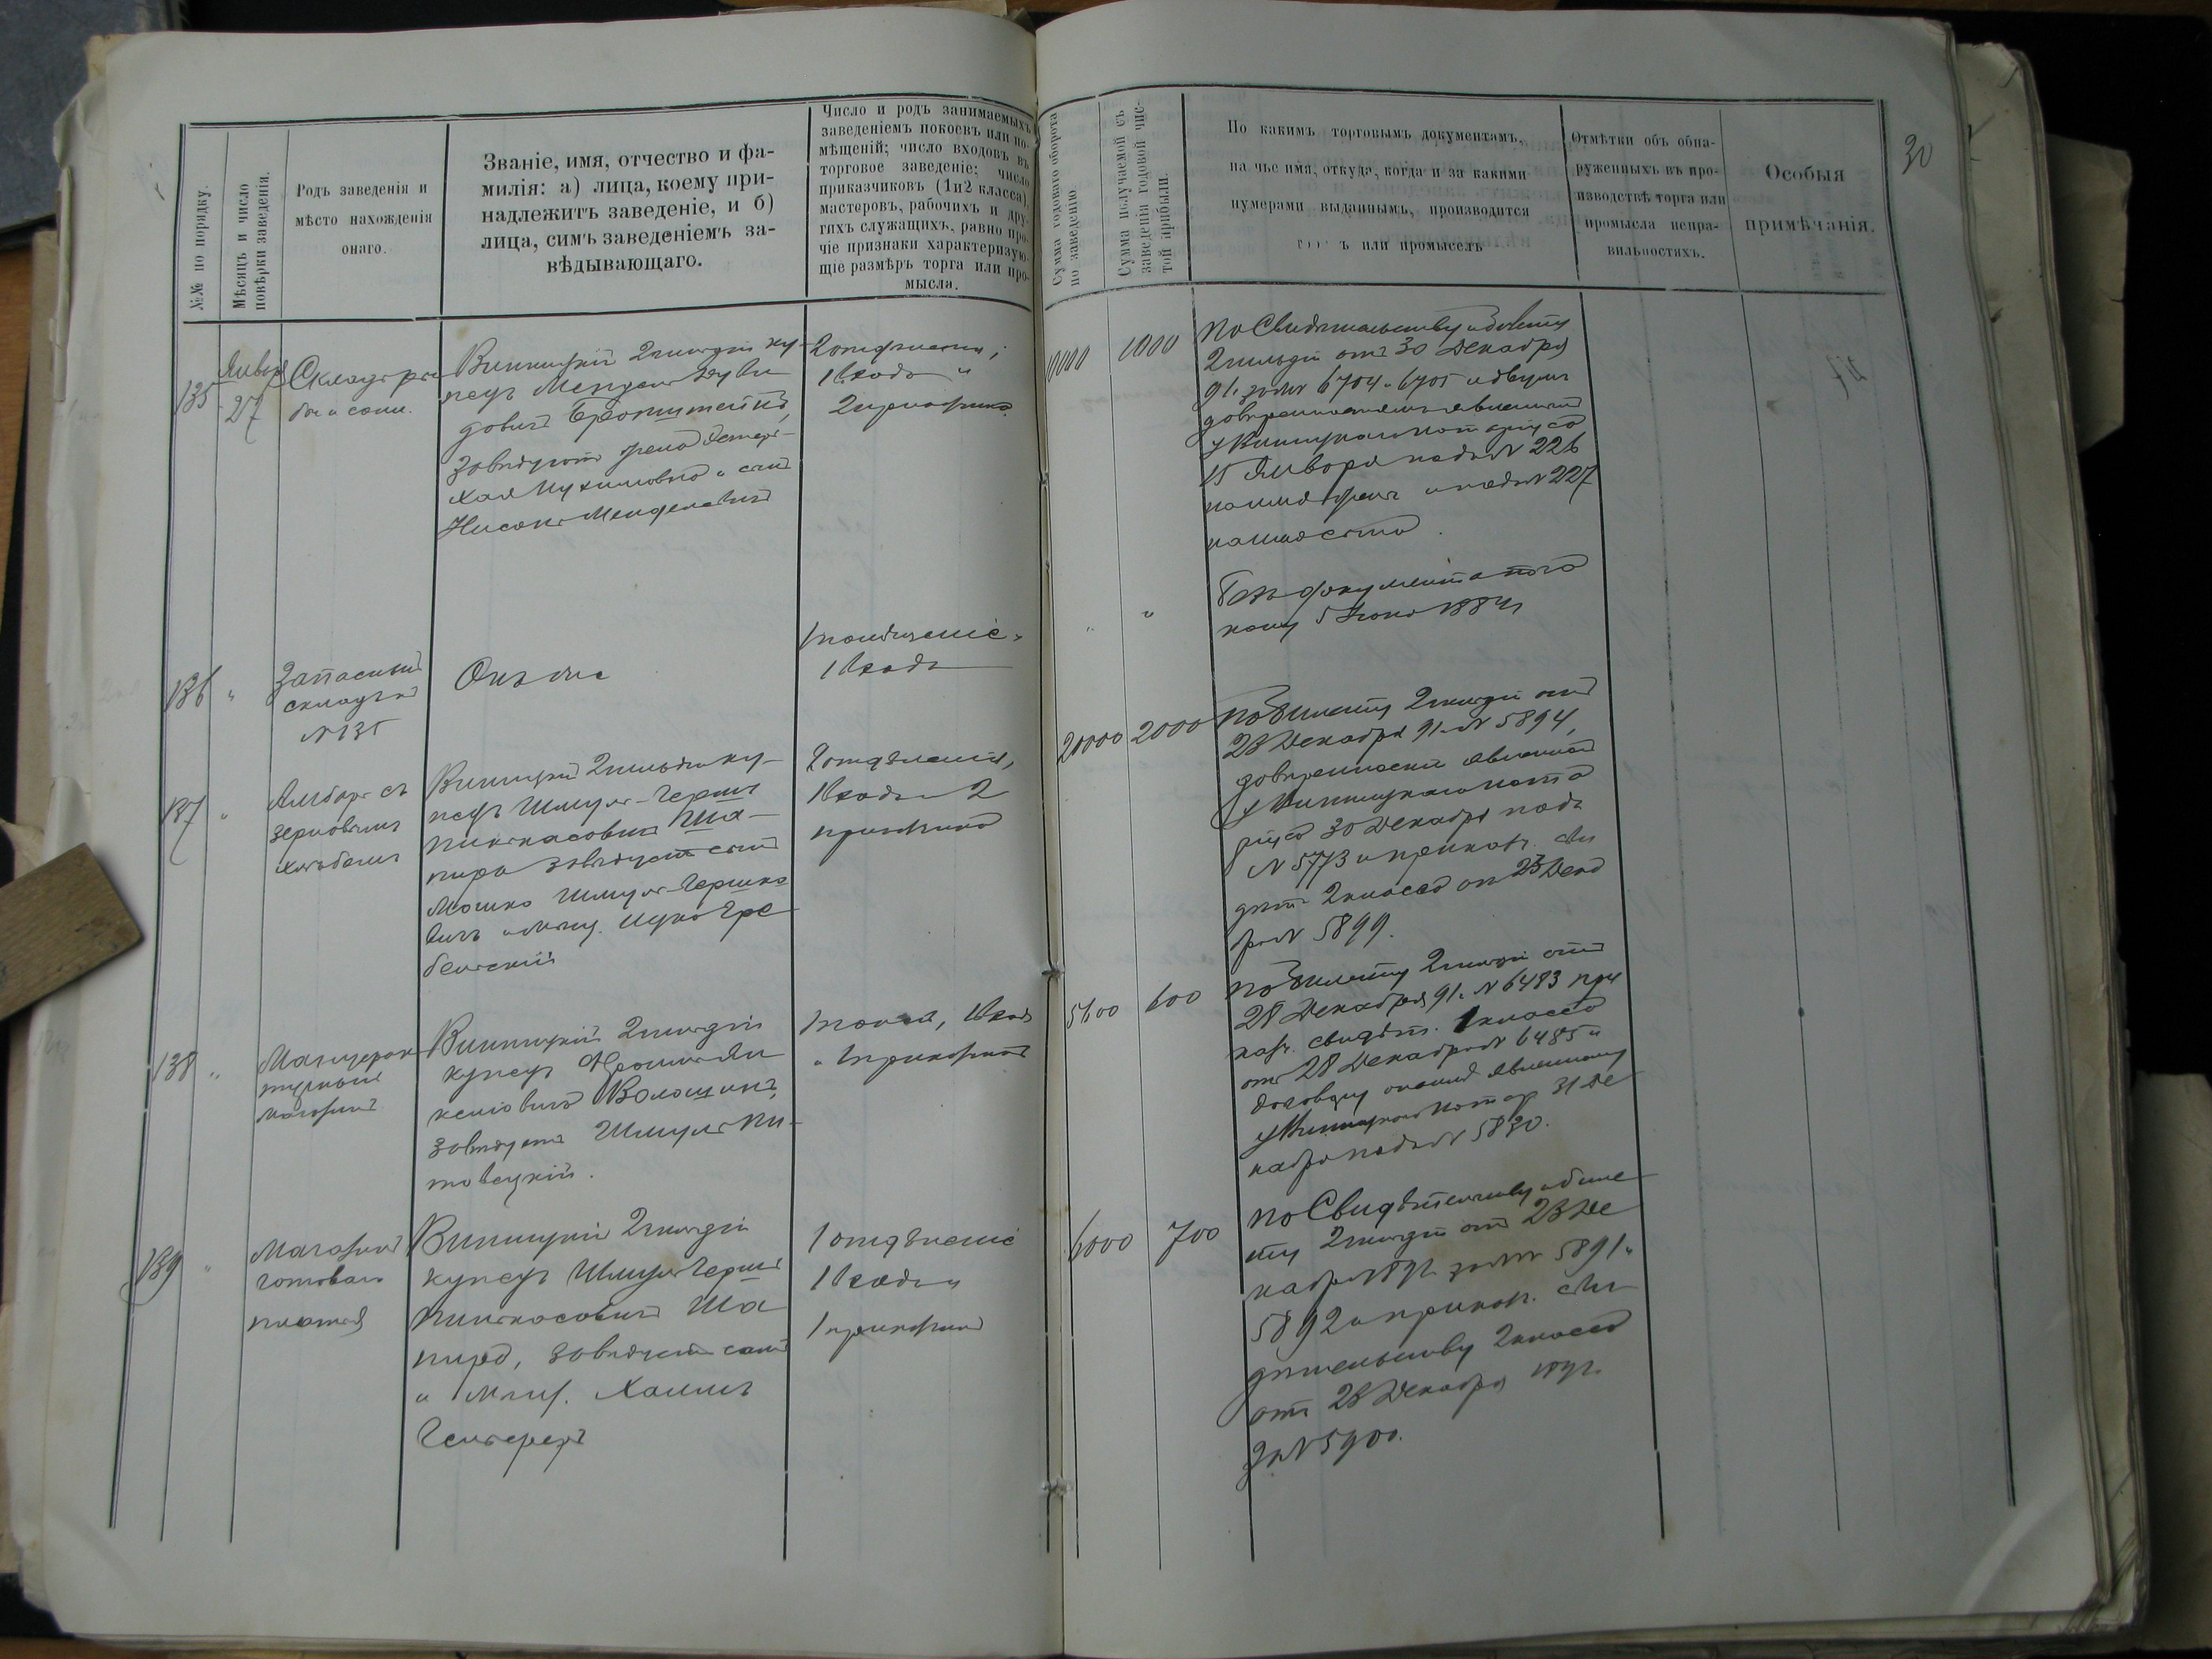 30
№№ по порядку.
Мѣсяцъ и число
повѣрки заведенія.
Родъ заведенія и
мѣсто нахожденія
онаго.
Званіе, имя, отчество и фа-
милія: а) лица, коему при-
надлежитъ заведеніе, и б)
лица, симъ заведеніемъ за-
вѣдывающаго.
Число и родъ занимаемыхъ
заведеніемъ покоевъ или по-
мѣщеній; число входовъ въ
торговое заведеніе; число
приказчиковъ (1 и 2 класса),
мастеровъ, рабочихъ и дру-
гихъ служащихъ, равно про-
чіе признаки характеризую-
щіе размѣръ торга или про-
мысла.
Сумма годового оборота
по заведенію
Сумма получаемой съ
заведенія годовой чис-
той прибыли.
По какимъ торговымъ документамъ,
на чье имя, откуда, когда и за какими
нумерами выданнымъ, производится
или промыселъ
Отмѣтки объ обна-
руженныхъ въ про-
изводствѣ торга или
промысла непра-
вильностяхъ.
Особыя
примѣчанія.
135
Января
27
Складъ ры
бы и соли.
Винницкій 2 гильдіи ку-
пецъ Мендель
довичъ
завѣдуютъ жена
Хая и сынъ
Нисонъ Менделевичъ
2 отдѣленія,
1 входъ и
2 приказчика
1000
По Свидѣтельству и билету
2 гильдіи отъ 30 Декабря
91 г. за №№ 6704 и 6705 и двумъ
довѣренностямъ явленнымъ
у Винницкаго Нотаріуса
15 Января подъ № 226
на имя жены и подъ № 227
на имя сына.
136
"
Запасный
складъ къ
№ 135
Онъ же
1 помѣщеніе,
1 входъ
"
"
Безъ документа по
1884 г.
137
"
Амбаръ съ
зерновымъ
хлѣбомъ
Винницкій 2 гильдіи ку-
пецъ Шмуль-Гершъ
Пинхасовичъ Ша-
пиро завѣдуетъ сынъ
Мошко Шмуль-Гершко
вичъ и мѣщ. Ицко Гре
бельскій
2 отдѣленія,
1 входъ и 2
приказчика
20000
2000
По билету 2 гильдіи отъ
23 Декабря 91 г. № 5894,
довѣренности явленной
у Винницкаго Нота
ріуса 30 Декабря подъ
№ 5773 и приказ. сви
дѣт. 2 класса отъ 23 Дека
бря № 5899.
138
"
Мануфак
турный
магазинъ
Винницкій 2 гильдіи
купецъ
Волошинъ,
завѣдуетъ Шмуль Пи-
товецкій.
1 входъ
и 1 приказчикъ
600
По билету 2 гильдіи отъ
28 Декабря 91 г. № 6483 при
каз. свидѣт. 1 класса
отъ 28 Декабря № 6485 и
договору явленному
у Винницкаго Нотар. 31 Де
кабря подъ № 5830.
139
"
Магазинъ
готоваго
платья
Винницкій 2 гильдіи
купецъ Шмуль Гершъ
Пинхасовичъ Ша
пиро, завѣдуетъ самъ
и мѣщ. Хаимъ
1 отдѣленіе
1 входъ и
1 приказчикъ
6000
700
По Свидѣтельству и биле
ту 2 гильдіи отъ 23 Де
кабря 1891 г. за №№ 5891 и
5892 и приказ. сви
дѣтельству 2 класса
отъ 23 Декабря 1891 г.
за № 5900.